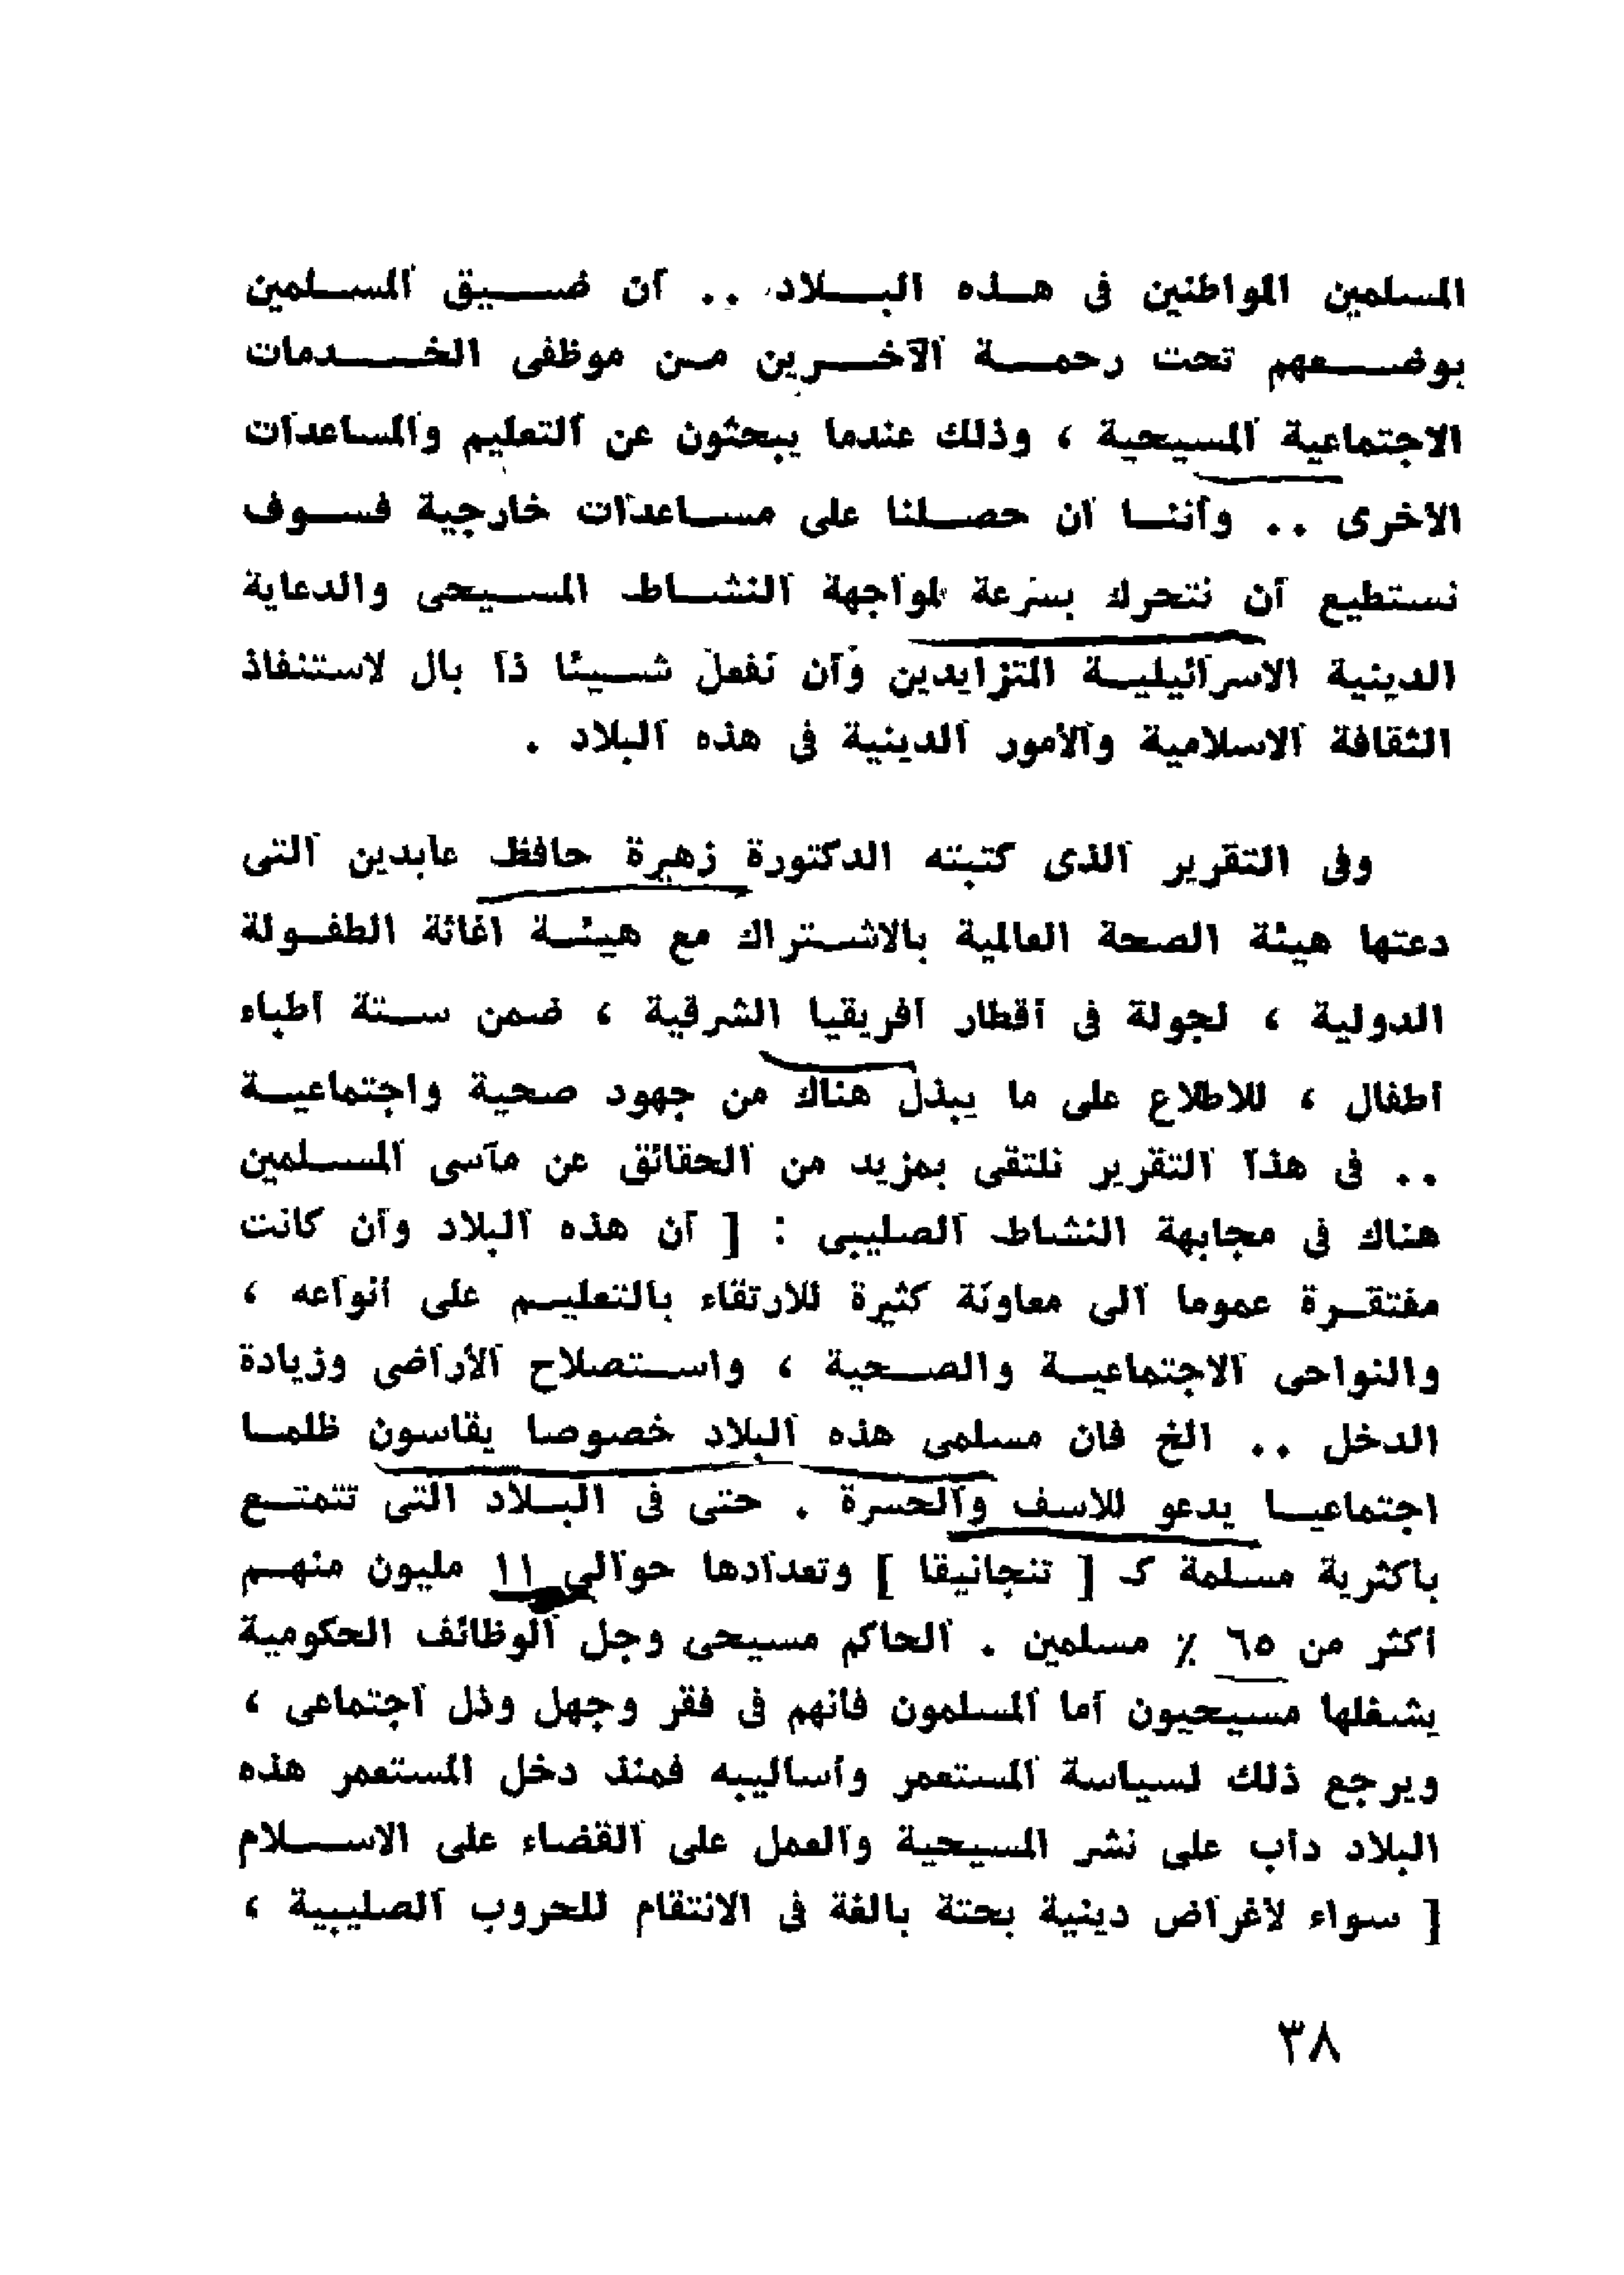 المسلمين المواطنين فى هذه البلاد .. ان ضيق المسلمين
بوضعهم تحت رحمة الآخرين من موظفى الخدمات
الاجتماعية المسيحية ، وذلك عندما يبحثون عن التعليم والمساعدات
الاخرى .. واننا ان حصلنا على مساعدات خارجية فسوف
نستطيع ان نتحرك بسرعة لمواجهة النشاط المسيحى والدعاية
الدينية الاسرائيلية المتزايدين وأن نفعل شيئا ذا بال لاستنفاذ
الثقافة الاسلامية والأمور الدينية فى هذه البلاد .
وفى التقرير الذى كتبته الدكتورة زهيرة حافظ عابدين التى
دعتها هيئة الصحة العالمية بالاشتراك مع هيئة اغاثة الطفولة
الدولية ، لجولة فى أقطار افريقيا الشرقية ، ضمن ستة أطباء
أطفال ، للاطلاع على ما يبذل هناك من جهود صحية واجتماعية
.. فى هذا التقرير نلتقى بمزيد من الحقائق عن مآسى المسلمين
هناك فى مجابهة النشاط الصليبى : [ ان هذه البلاد وان كانت
مفتقرة عموما الى معاونة كثيرة للارتقاء بالتعليم على انواعه ،
والنواحى الاجتماعية والصحية ، واستصلاح الأراضى وزيادة
الدخل .. الخ فان مسلمى هذه البلاد خصوصا يقاسون ظلما
اجتماعيا يدعو للاسف والحسرة . حتى فى البلاد التى تتمتع
باكثرية مسلمة كـ [ تنجانيقا ] وتعدادها حوالى ١١ مليون منهم
أكثر من ٦٥ ٪ مسلمين . الحاكم مسيحى وجل الوظائف الحكومية
يشغلها مسيحيون أما المسلمون فانهم فى فقر وجهل وذل اجتماعى ،
ويرجع ذلك لسياسة المستعمر وأساليبه فمنذ دخل المستعمر هذه
البلاد دأب على نشر المسيحية والعمل على القضاء على الاسلام
[ سواء لأغراض دينية بحتة بالغة فى الانتقام للحروب الصليبية ،
٣٨